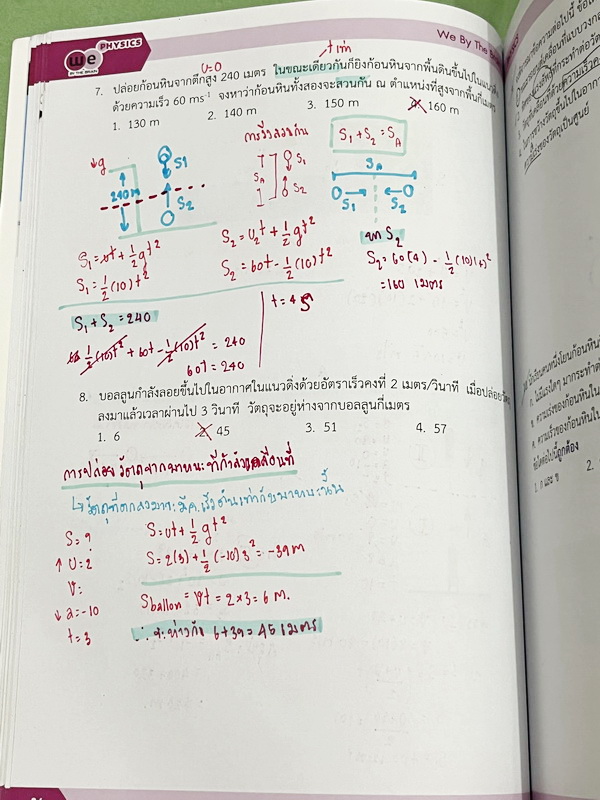 we PHYSICS
BY THE BRAIN
We By The
u=0
t เท่า
7. ปล่อยก้อนหินจากตึกสูง 240 เมตร ในขณะเดียวกันก็ยิงก้อนหินจากพื้นดินขึ้นไปในแนวดิ่ง
ด้วยความเร็ว 60 ms⁻¹ จงหาว่าก้อนหินทั้งสองจะสวนกัน ณ ตำแหน่งที่สูงจากพื้นกี่เมตร
1. 130 m 2. 140 m 3. 150 m 4. 160 m
การวิ่งสวนกัน
S₁+S₂ = S_A
↓g
240 m
S₁
S₂
S_A
S₁
S₂
S_A
S₁
S₂
S₁ = ut + ½gt²
S₁ = ½(10)t²
S₂ = U₂t + ½gt²
S₂ = 60t - ½(10)t²
หา S₂
S₂ = 60(4) - ½(10)(4)²
= 160 เมตร
S₁+S₂ = 240
½(10)t² + 60t - ½(10)t² = 240
60t = 240
t = 4 s
8. บอลลูนกำลังลอยขึ้นไปในอากาศในแนวดิ่งด้วยอัตราเร็วคงที่ 2 เมตร/วินาที เมื่อปล่อยวัตถุ
ลงมาแล้วเวลาผ่านไป 3 วินาที วัตถุจะอยู่ห่างจากบอลลูนกี่เมตร
1. 6 2. 45 3. 51 4. 57
การปล่อยวัตถุจากพาหนะที่กำลังเคลื่อนที่
↳ วัตถุที่ตกลงมาจะมีค.เร็วต้นเท่ากับพาหนะนั้น
S = ?
↑ U = 2
V =
↓ a = -10
t = 3
S = ut + ½gt²
S = 2(3) + ½(-10)3² = -39 m
Sballon = vt = 2×3 = 6 m.
∴ จะห่างกัน 6+39 = 45 เมตร